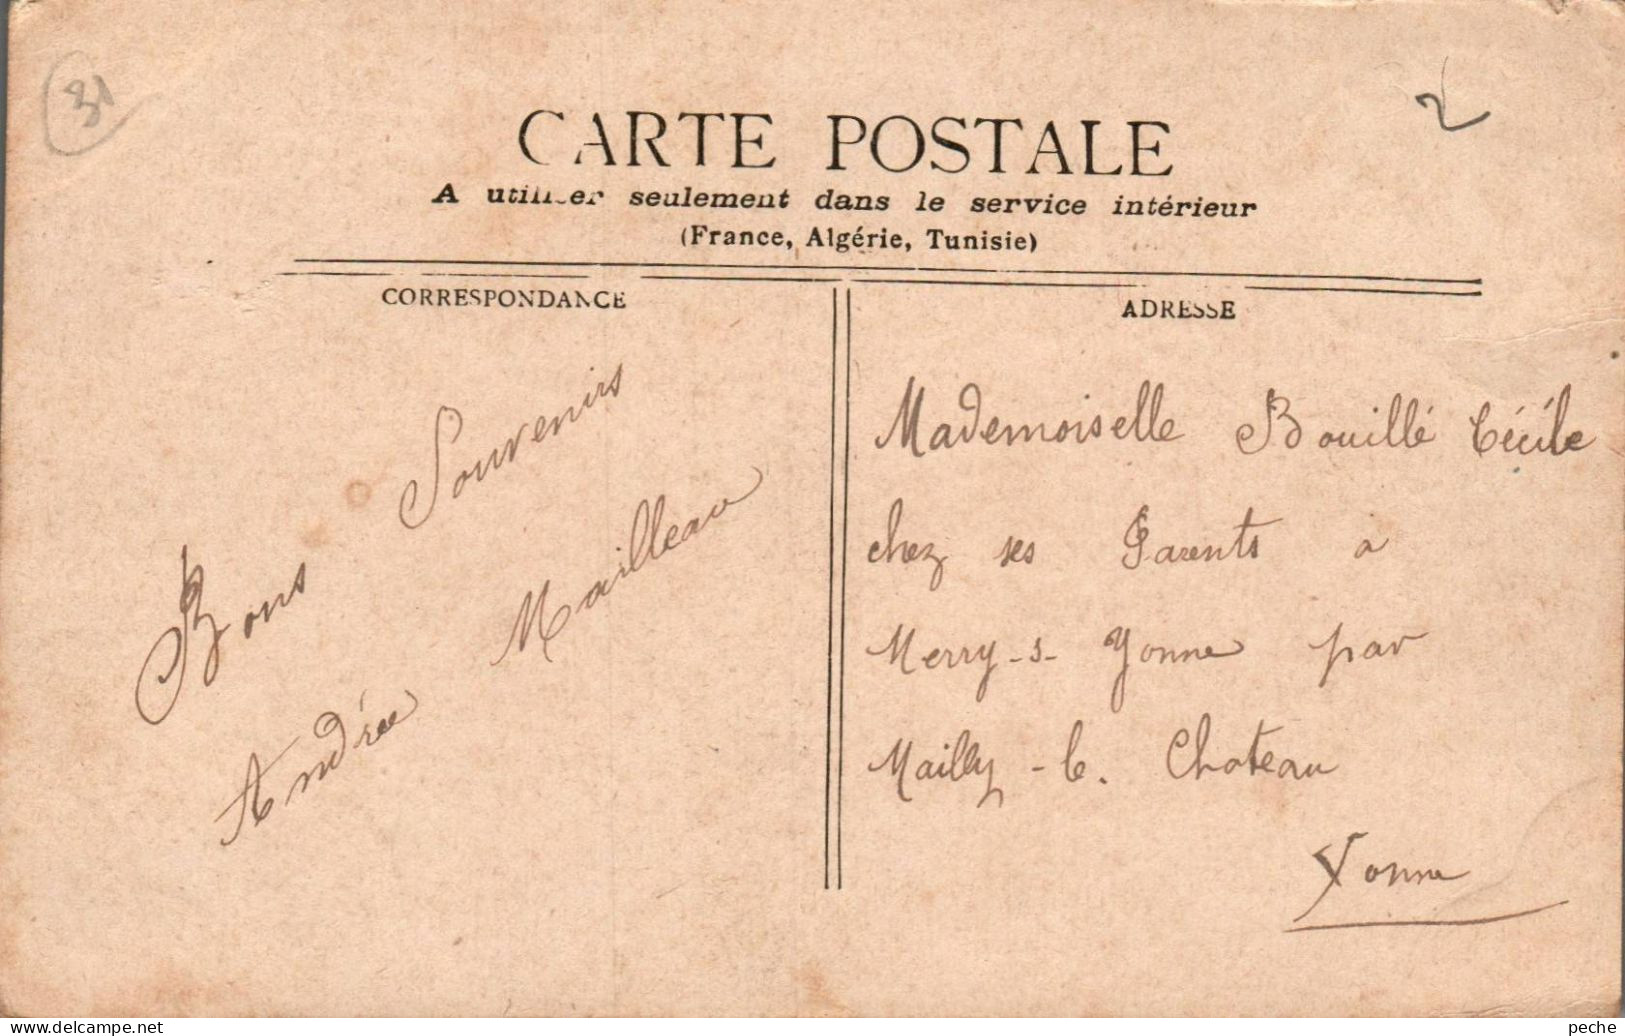 31
2
CARTE POSTALE
A utiliser seulement dans le service intérieur
(France, Algérie, Tunisie)
CORRESPONDANCE
Bons Souvenirs
Andrée Mailleau
ADRESSE
Mademoiselle Bouillé Cécile
chez ses Parents a
Merry-s-Yonne par
Mailly-le. Chateau
Yonne
www.delcampe.net
peche